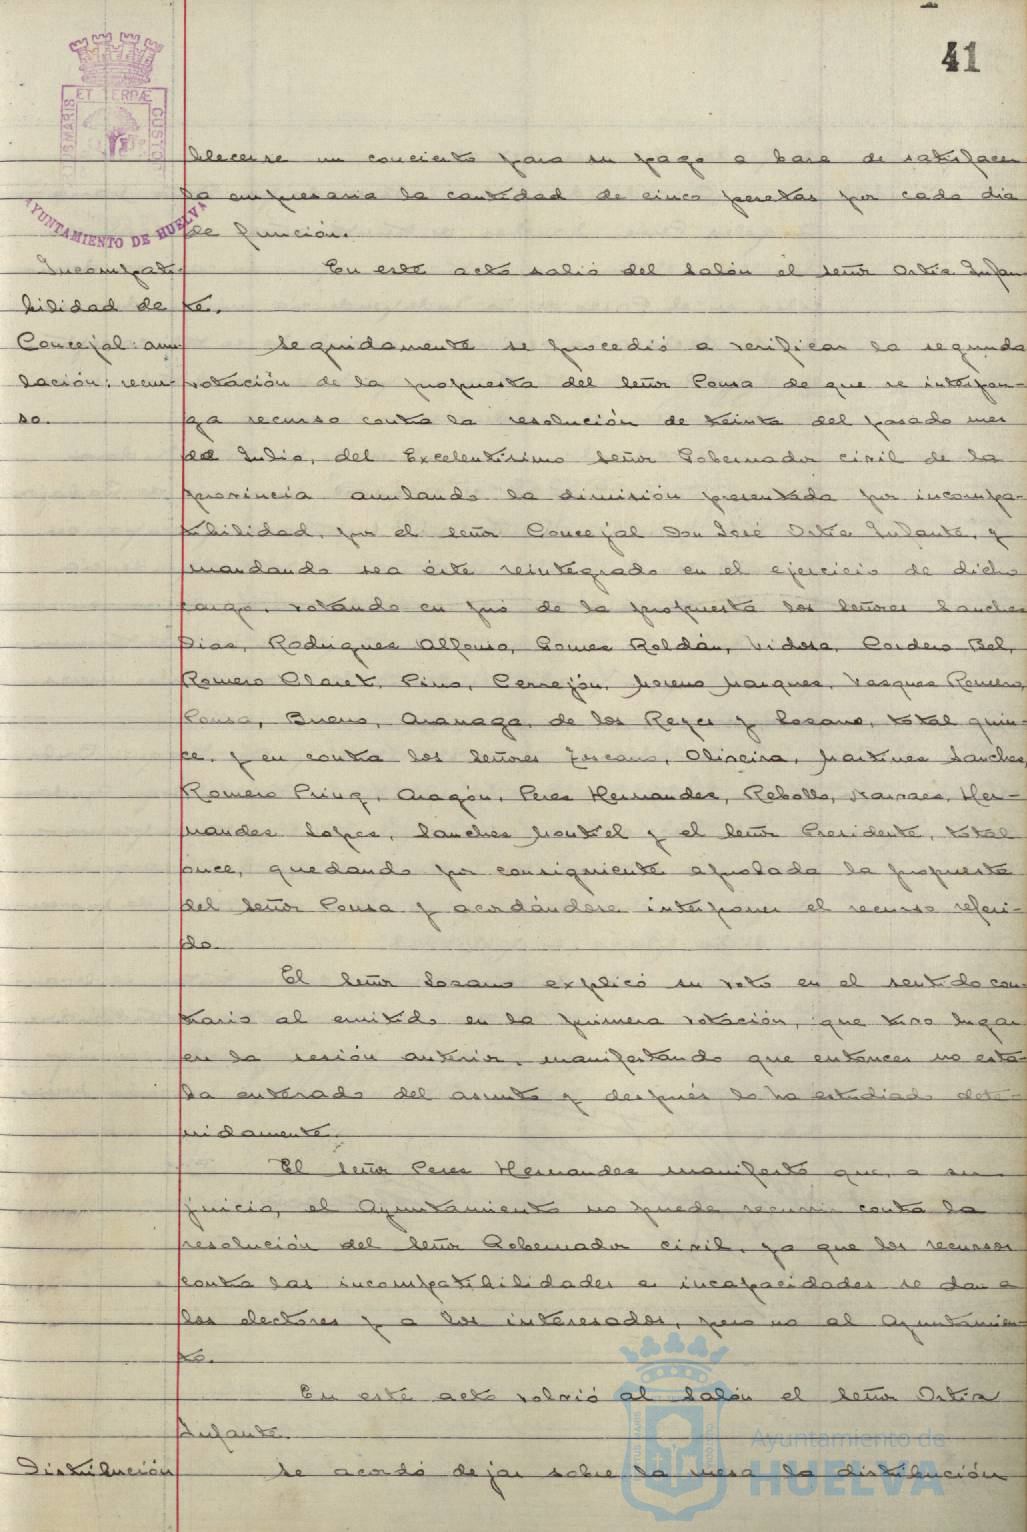 41
ET TERRÆ
AYUNTAMIENTO DE HUELVA
blecerse un concierto para su pago a base de satisfacer
la empresaria la cantidad de cinco pesetas por cada dia
de función.
Incompati-
En este acto salió del Salón el señor Ortiz Infan-
bilidad de
te.
Concejal: anu-
Seguidamente se procedió a verificar la segunda
lación: recur-
votación de la propuesta del Señor Ponsa de que se interpon-
so.
ga recurso contra la resolución de treinta del pasado mes
de Julio, del Excelentísimo Señor Gobernador civil de la
provincia anulando la dimisión presentada por incompa-
tibilidad, por el señor Concejal Don José Ortiz Infante, y
mandando sea éste reintegrado en el ejercicio de dicho
cargo, votando en pró de la propuesta los Señores Sanchez
Diaz, Rodriguez Alfonso, Gomez Roldán, Vidosa, Cordero Bel,
Romero Claret, Pino, Cerrejón, Moreno Marquez, Vazquez Romero,
Ponsa, Bueno, Aranaga, de los Reyes y Lozano, total quin-
ce, y en contra los Señores Toscano, Oliveira, Martinez Sanchez,
Romero Pring, Aragón, Perez Hernandez, Rebollo, Narvaez, Her-
nandez Lopez, Sanchez Montiel y el Señor Presidente, total
once, quedando por consiguiente aprobada la propuesta
del Señor Ponsa y acordándose interponer el recurso referi-
do.
El Señor Lozano explicó su voto en el sentido con-
trario al emitido en la primera votación, que tuvo lugar
en la sesión anterior, manifestando que entonces no esta-
ba enterado del asunto y después lo ha estudiado dete-
nidamente.
El Señor Perez Hernandez manifestó que, a su
juicio, el Ayuntamiento no puede recurrir contra la
resolución del Señor Gobernador civil, ya que los recursos
contra las incompatibilidades e incapacidades se dan a
los electores y a los interesados, pero no al Ayuntamien-
to.
En este acto volvió al Salón el Señor Ortiz
Infante.
Distribución
Se acordó dejar sobre la mesa la distribución
Ayuntamiento de
HUELVA